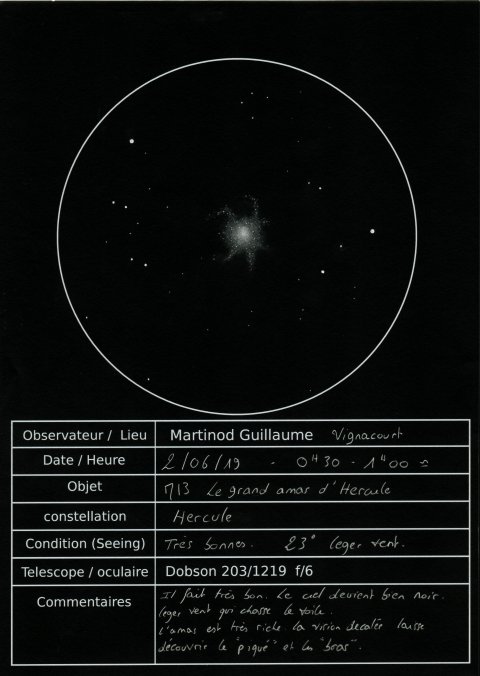 Observateur / Lieu Martinod Guillaume Vignacourt
Date / Heure 2/06/19 - 0H30 - 1H00 ≈
Objet M13 Le grand amas d'Hercule
constellation Hercule
Condition (Seeing) Très bonnes. 23° leger vent.
Telescope / oculaire Dobson 203/1219 f/6
Commentaires Il fait très bon. Le ciel devient bien noir.
leger vent qui chasse le voile.
L'amas est très riche. la vision decalée laisse
découvrir le "piqué" et les "bras".